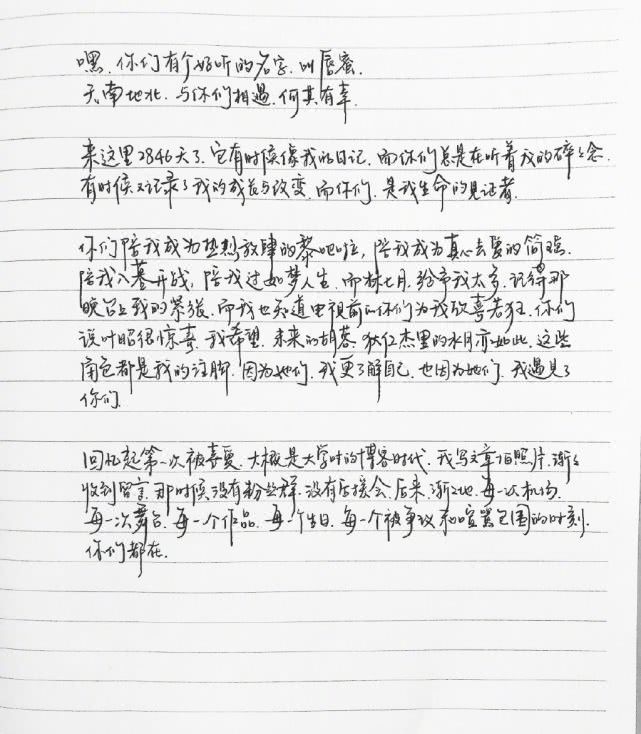 嘿.你们有个好听的名字.叫唇蜜.
天南地北.与你们相遇.何其有幸.
来这里2846天了.它有时候像我的日记.而你们总是在听着我的碎碎念.
有时候又记录了我的成长与改变.而你们.是我生命的见证者.
你们陪我成为热烈放肆的黎吧啦,陪我成为真心去爱的简瑶.
陪我入幕开战,陪我过如梦人生.而林七月.给予我太多.记得那
晚台上我的紧张.而我也知道电视前的你们为我欣喜若狂.你们
说叶昭很惊喜.我希望.未来的胡蓉.狄仁杰里的水月亦如此.这些
角色都是我的注脚.因为她们.我更了解自己.也因为她们.我遇见了
你们.
回忆起第一次被喜爱.大概是大学时的博客时代.我写文章拍照片.渐渐
收到留言.那时候没有粉丝群.没有后援会.后来.渐渐地.每一次机场.
每一次舞台.每一个作品.每一个生日.每一个被争议和喧嚣包围的时刻.
你们都在.